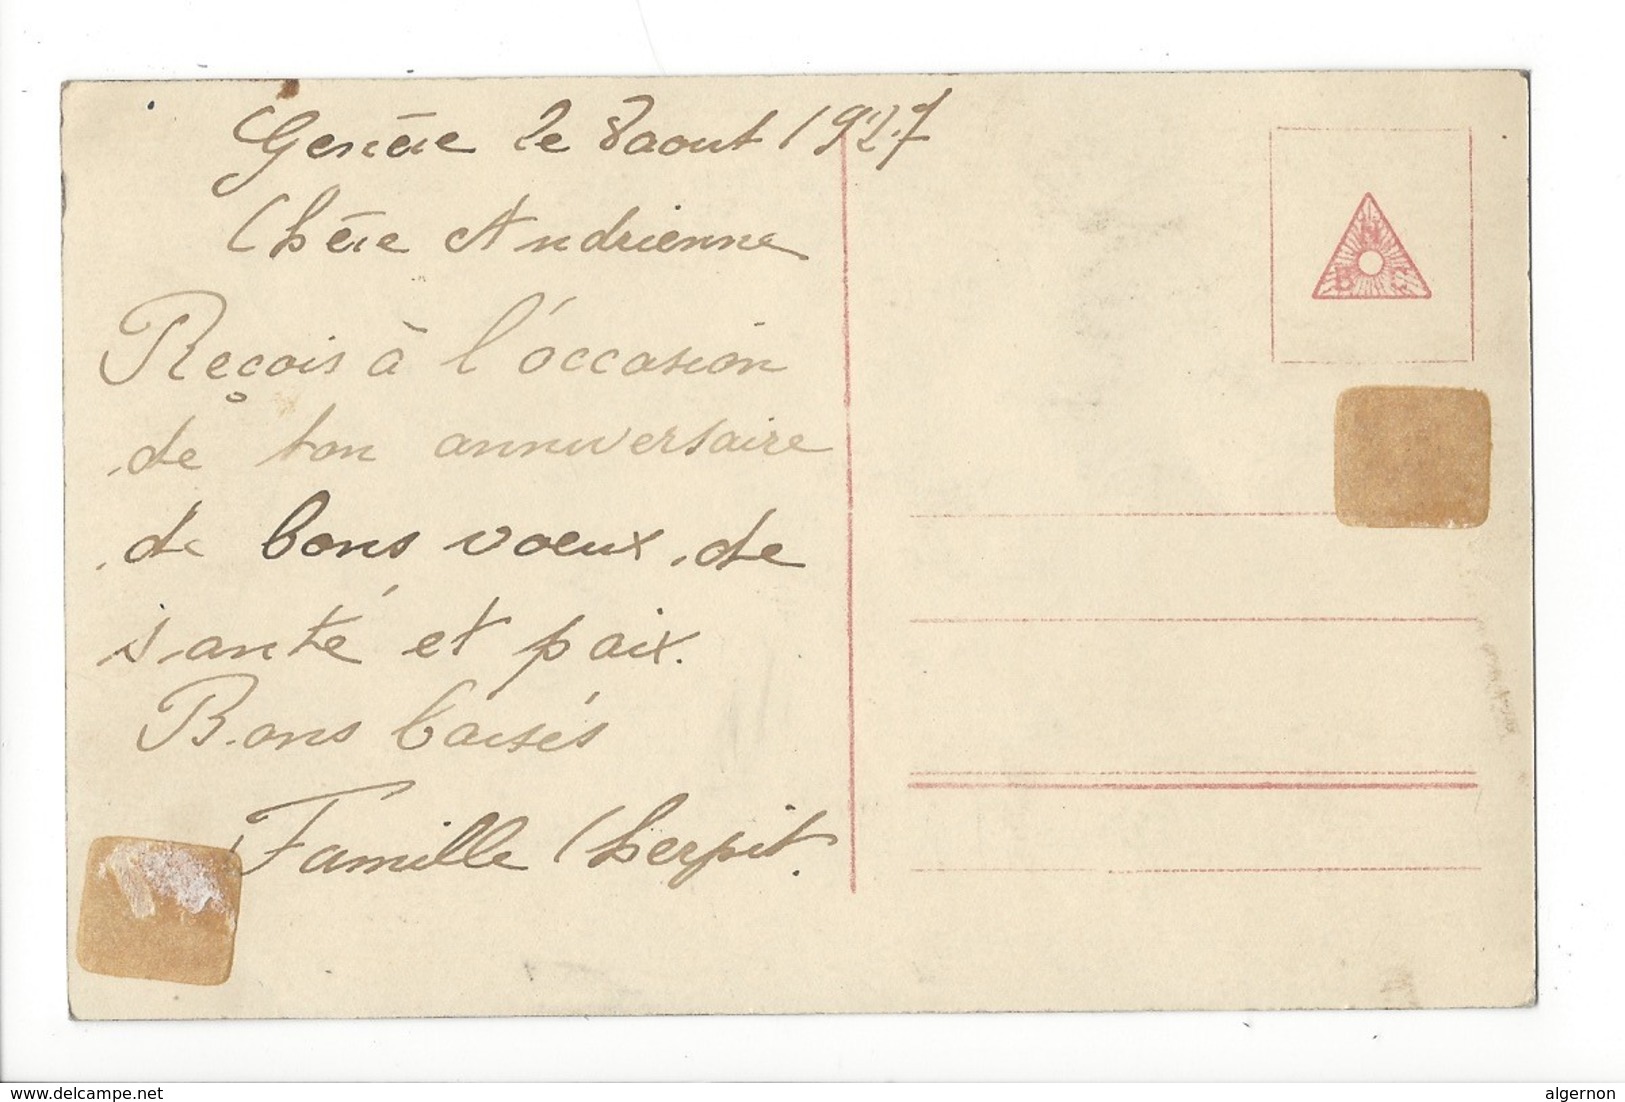 Genève le 8 aout 1927
Chère Andrienne
Reçois à l'occasion
de ton anniversaire
de bons voeux de
santé et paix.
Bons baisés
Famille Cherpit.
N
B C
© delcampe.net
algernon